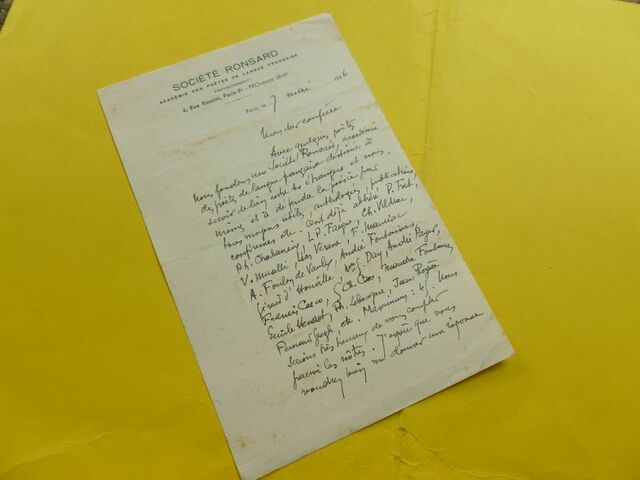 SOCIÉTÉ RONSARD
ACADÉMIE DES POÈTES DE LANGUE FRANÇAISE
4, Rue Rossini, Paris-9e - PROvence
Paris, le 7 mai 1946
Mon cher confrère
Avec quelques poètes
Nous fondons une Société Ronsard, académie
de poètes de langue française destinée à
servir de lien entre les étrangers et nous
mêmes et à défendre la poésie par
tous moyens utiles, anthologies, publications,
conférences etc. Ont déjà adhéré P. Fort,
Ph. Chabaneix, L.P. Fargue, Ch. Vildrac,
V. Muselli, Léon Vérane, F. Mauriac
A. Foulon de Vaulx, André Fontainas
Gérard d'Houville, André Payer,
Francis Carco, Maurice Fombeure,
Emile Henriot, Ph. Lebesgue,
Fernand Gregh, etc. Maximum : 45 Nous
serions très heureux de vous compter
parmi les nôtres. J'espère que vous
voudrez bien me donner une réponse